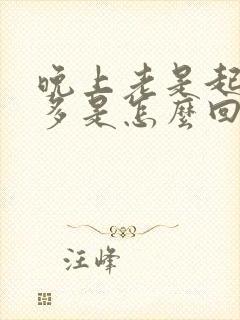 晚上老是起
多是怎麼回
汪峰